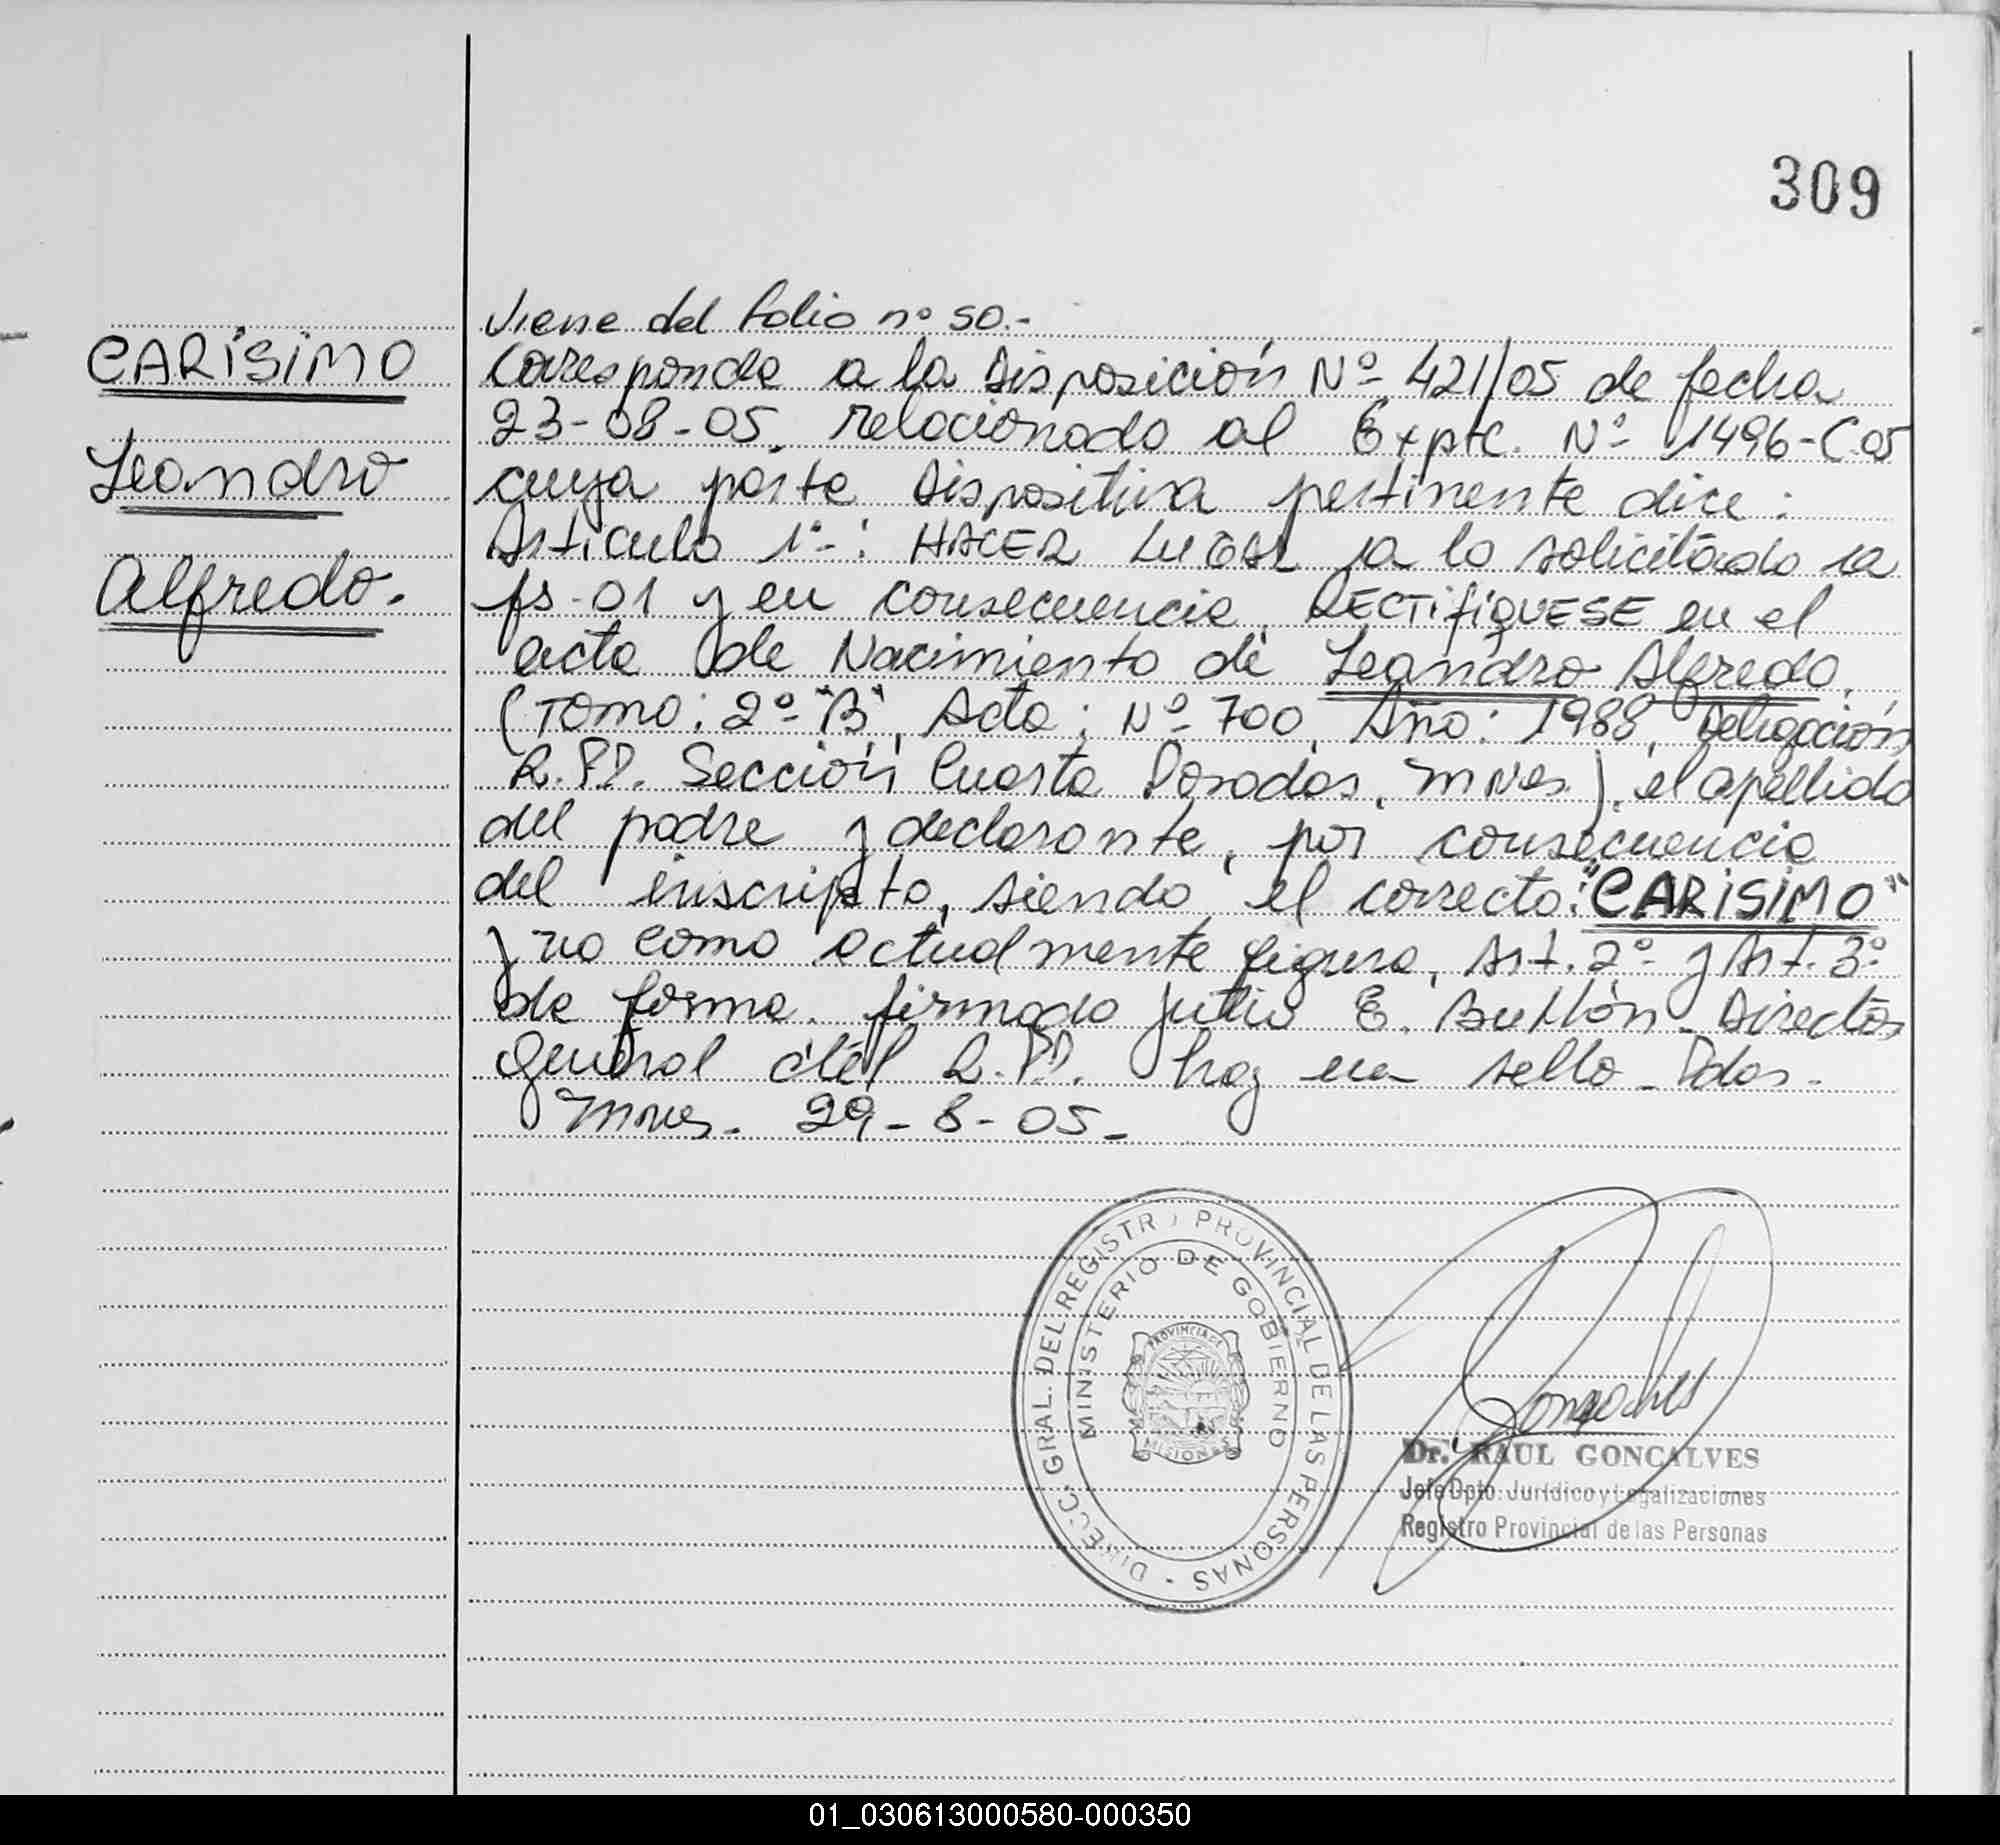 309
Viene del folio nº 50.-
CARISIMO
Leandro
Alfredo.
Corresponde a la Disposición Nº 421/05 de fecha
23-08-05, relacionado al Expte. Nº 1496-C-05
cuya parte Dispositiva pertinente dice:
Articulo 1º-: HACER LUGAR a lo solicitado a
fs-01 y en consecuencia, RECTIFIQUESE en el
acta de Nacimiento de Leandro Alfredo,
(Tomo: 2º "B", Acta: Nº 700, Año: 1988, Delegación
R.P.P. Sección Cuarta Posadas, Mnes.), el apellido
del padre y declarante, por consecuencia
del inscripto, siendo el correcto: "CARISIMO"
y no como actualmente figura, Art. 2º y Art. 3º
de forma. firmado Julio E. Bullón - Director
General del R.P.P. hay un sello - Pdas.
Mnes. 29-8-05-
DIRECC. GRAL. DEL REGISTRO PROVINCIAL DE LAS PERSONAS
MINISTERIO DE GOBIERNO
PROVINCIA DE
MISIONES
Goncalves
Dr. RAUL GONCALVES
Jefe Dpto. Jurídico y Legalizaciones
Registro Provincial de las Personas
01_030613000580-000350